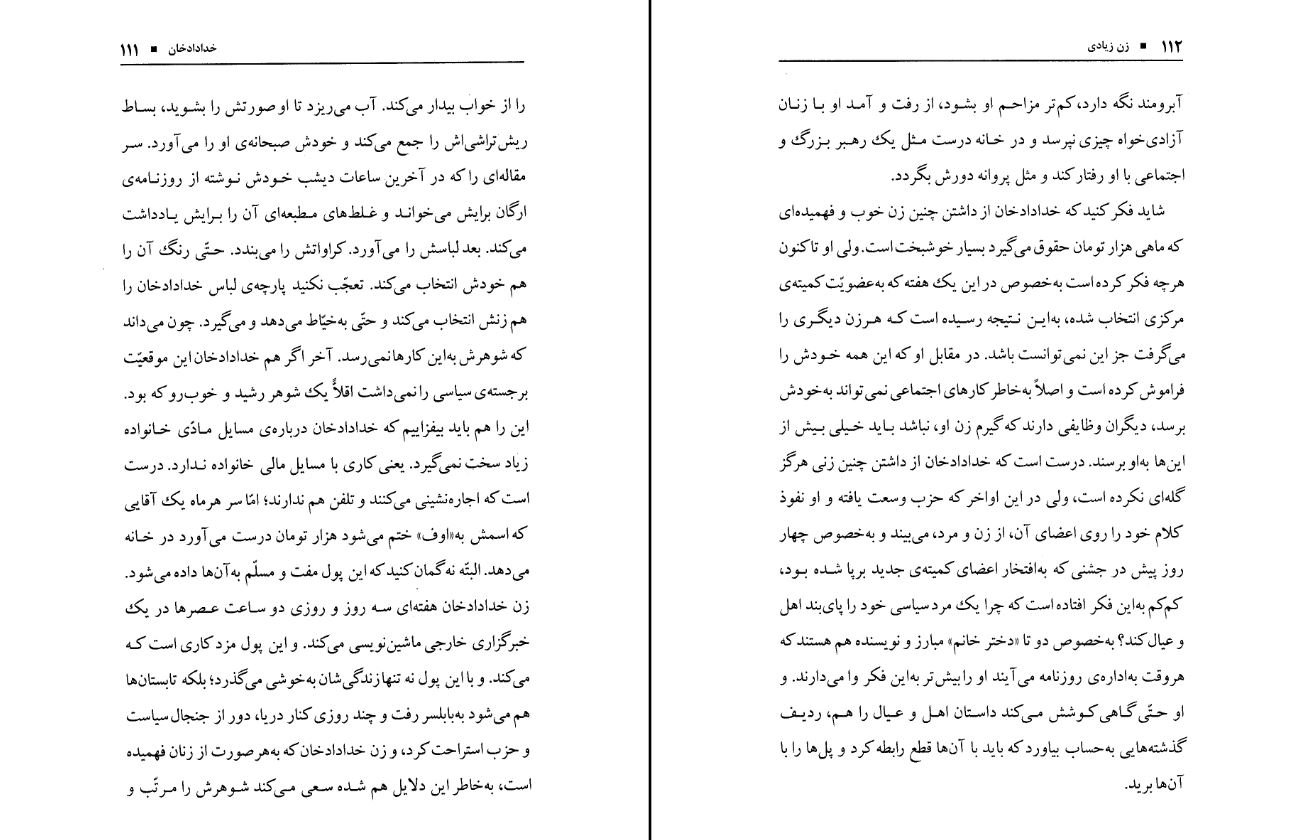 خدادادخان ■ ۱۱۱
را از خواب بیدار می‌کند. آب می‌ریزد تا او صورتش را بشوید، بساط
ریش‌تراشی‌اش را جمع می‌کند و خودش صبحانه‌ی او را می‌آورد. سر
مقاله‌ای را که در آخرین ساعات دیشب خودش نوشته از روزنامه‌ی
ارگان برایش می‌خواند و غلط‌های مطبعه‌ای آن را برایش یادداشت
می‌کند. بعد لباسش را می‌آورد. کراواتش را می‌بندد. حتّی رنگ آن را
هم خودش انتخاب می‌کند. تعجّب نکنید پارچه‌ی لباس خدادادخان را
هم زنش انتخاب می‌کند و حتّی به‌خیّاط می‌دهد و می‌گیرد. چون می‌داند
که شوهرش به‌این کارها نمی‌رسد. آخر اگر هم خدادادخان این موقعیّت
برجسته‌ی سیاسی را نمی‌داشت اقلاً یک شوهر رشید و خوب‌رو که بود.
این را هم باید بیفزاییم که خدادادخان درباره‌ی مسایل مادّی خانواده
زیاد سخت نمی‌گیرد. یعنی کاری با مسایل مالی خانواده ندارد. درست
است که اجاره‌نشینی می‌کنند و تلفن هم ندارند؛ امّا سر هرماه یک آقایی
که اسمش به«اوف» ختم می‌شود هزار تومان درست می‌آورد در خانه
می‌دهد. البتّه نه گمان کنید که این پول مفت و مسلّم به‌آن‌ها داده می‌شود.
زن خدادادخان هفته‌ای سه روز و روزی دو ساعت عصرها در یک
خبرگزاری خارجی ماشین‌نویسی می‌کند. و این پول مزد کاری است که
می‌کند. و با این پول نه تنها زندگی‌شان به‌خوشی می‌گذرد؛ بلکه تابستان‌ها
هم می‌شود به‌بابلسر رفت و چند روزی کنار دریا، دور از جنجال سیاست
و حزب استراحت کرد، و زن خدادادخان که به‌هر صورت از زنان فهمیده
است، به‌خاطر این دلایل هم شده سعی می‌کند شوهرش را مرتّب و
۱۱۲ ■ زن زیادی
آبرومند نگه دارد، کم‌تر مزاحم او بشود، از رفت و آمد او با زنان
آزادی‌خواه چیزی نپرسد و در خانه درست مثل یک رهبر بزرگ و
اجتماعی با او رفتار کند و مثل پروانه دورش بگردد.
شاید فکر کنید که خدادادخان از داشتن چنین زن خوب و فهمیده‌ای
که ماهی هزار تومان حقوق می‌گیرد بسیار خوشبخت است. ولی او تاکنون
هرچه فکر کرده است به‌خصوص در این یک هفته که به‌عضویّت کمیته‌ی
مرکزی انتخاب شده، به‌این نتیجه رسیده است که هرزن دیگری را
می‌گرفت جز این نمی‌توانست باشد. در مقابل او که این همه خودش را
فراموش کرده است و اصلاً به‌خاطر کارهای اجتماعی نمی‌تواند به‌خودش
برسد، دیگران وظایفی دارند که گیرم زن او، نباشد باید خیلی بیش از
این‌ها به‌او برسند. درست است که خدادادخان از داشتن چنین زنی هرگز
گله‌ای نکرده است، ولی در این اواخر که حزب وسعت یافته و او نفوذ
کلام خود را روی اعضای آن، از زن و مرد، می‌بیند و به‌خصوص چهار
روز پیش در جشنی که به‌افتخار اعضای کمیته‌ی جدید برپا شده بود،
کم‌کم به‌این فکر افتاده است که چرا یک مرد سیاسی خود را پای‌بند اهل
و عیال کند؟ به‌خصوص دو تا «دختر خانم» مبارز و نویسنده هم هستند که
هروقت به‌اداره‌ی روزنامه می‌آیند او را بیش‌تر به‌این فکر وا می‌دارند. و
او حتّی گاهی کوشش می‌کند داستان اهل و عیال را هم، ردیف
گذشته‌هایی به‌حساب بیاورد که باید با آن‌ها قطع رابطه کرد و پل‌ها را با
آن‌ها برید.